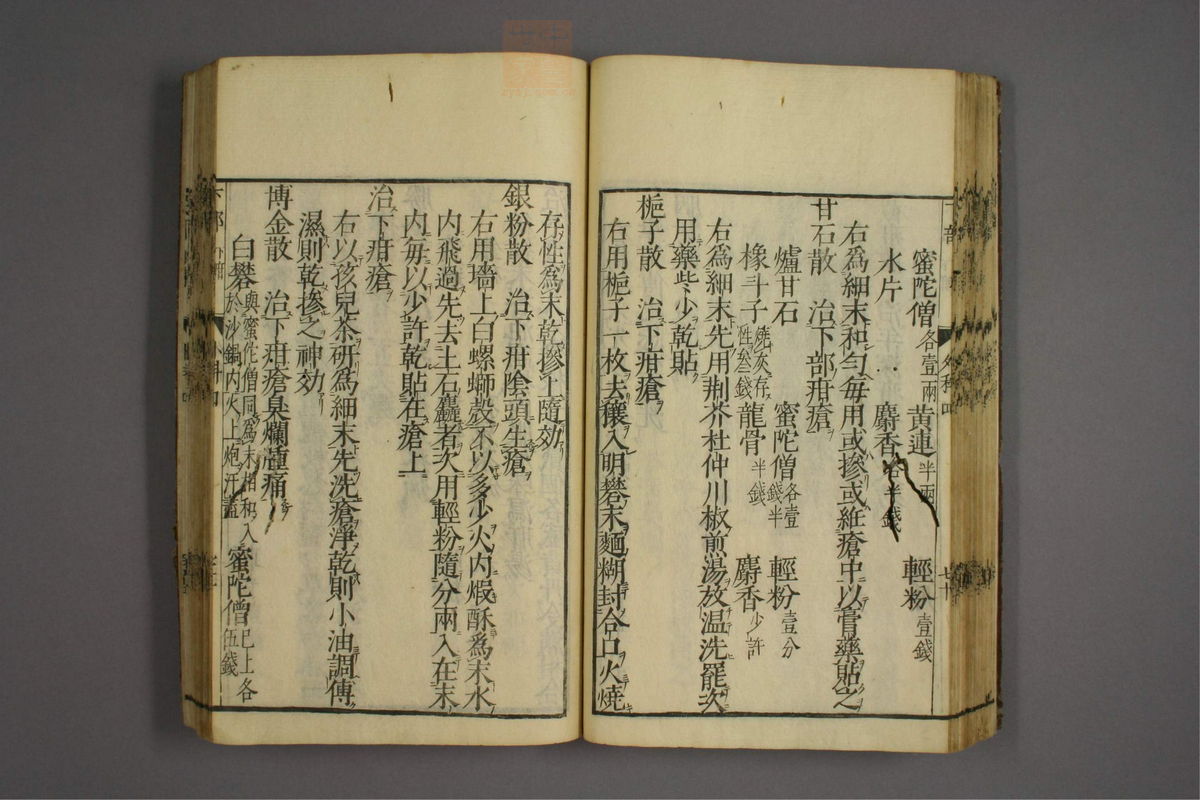 蜜陀僧各壹兩 黄連半兩 輕粉壹錢
水片 麝香各半錢
右為細末和勻毎用或摻或絍瘡中以膏藥貼之
甘石散 治下部疳瘡
爐甘石 蜜陀僧各壹錢半 輕粉壹分
椽斗子燒灰存性叁錢 龍骨半錢 麝香少許
右為細末先用荆芥杜仲川椒煎湯放温洗罷次
用藥些少乾貼
梔子散 治下疳瘡
右用梔子一枚去穰入明礬末麵糊封合口火燒
存性為末乾摻上隨効
銀粉散 治下疳陰頭生瘡
右用墻上白螺螄殻不以多少火内煆酥為末水
内飛過先去土石麤者次用輕粉隨分兩入在末
内毎以少許乾貼在瘡上
治下疳瘡
右以孩兒茶研為細末先洗瘡淨乾則小油調傅
濕則乾摻之神効
博金散 治下疳瘡臭爛腫痛
白礬與蜜佗僧同為末相和入於沙鍋内火上炮汗盡 蜜陀僧已上各伍錢